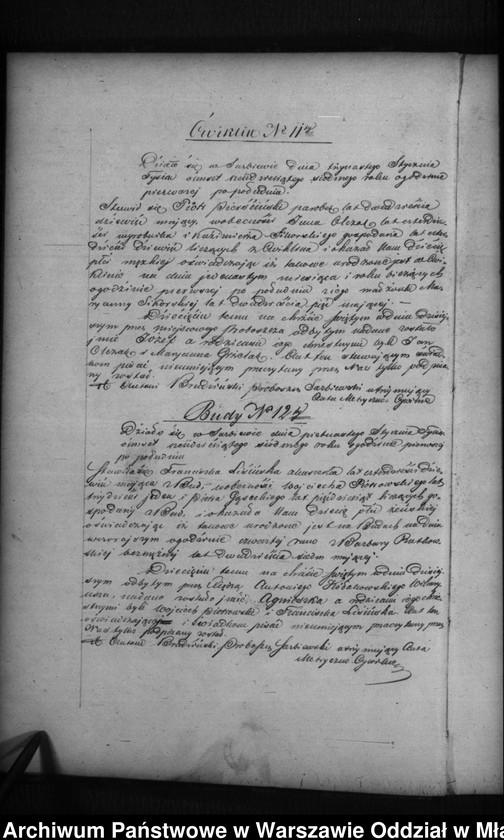 Ćwiklin Nº 11
Działo się w Sarbiewie dnia trzynastego Stycznia
Tysiąc ośmset siódmego roku o godzinie
pierwszej po południu.
Stawił się Piotr parobek lat dwadzieścia
dziewięć mający, w obecności Jana Olczak lat
wyrobnika i Kazimierza Sikorskiego gospodarza lat
dziewięć liczących z Ćwiklina i okazał Nam dziecię
płci męzkiej oświadczając iż takowe urodzone jest w Ćwi-
klinie na dniu jedenastym miesiąca i roku bieżących
o godzinie pierwszej po południu z jego małżonki Ma-
ryanny Sikorskiej lat dwadzieścia pięć mającej. —
Dziecięciu temu na chrzcie świętym w dniu dzisiej-
szym przez miejscowego Proboszcza odbytym nadane zostało
imie Józef a rodzicami jego chrzestnymi byli Jan
Olczak i Maryanna. Akt ten stawającym i świad-
kom pisać nieumiejącym przeczytany przez Nas tylko podpisa-
ny został.
X. Antoni Proboszcz Sarbiewski utrzymujący
Akta Metryczne Cywilne
Budy Nº 12
Działo się w Sarbiewie dnia piętnastego Stycznia Tysiąc
ośmset siódmego roku o godzinie pierwszej
po południu
Stawiła się Franciszka Lisińska akuszerka lat czterdzieści dzie-
więć mająca z Bud w obecności Wojciecha Piotrowskiego lat
trzydzieści jeden i Piotra lat pięćdziesiąt liczących go-
spodarzy z Bud i okazała Nam dziecię płci żeńskiej
oświadczając iż takowe urodzone jest na Budach na dniu
wczorajszym o godzinie czwartej rano z Barbary
bezmężnej lat dwadzieścia siedm mającej.
Dziecięciu temu na chrzcie świętym w dniu dzisiej-
szym odbytym przez Księdza Antoniego
nadane zostało imie Agnieszka a rodzicami jego chrze-
stnymi byli Wojciech Piotrowski i Franciszka Lisińska. Akt ten
oświadczającej i świadkom pisać nieumiejącym przeczytany przez
Nas tylko podpisany został.
X. Antoni Proboszcz Sarbiewski utrzymujący Akta
Metryczne Cywilne
Archiwum Państwowe w Warszawie Oddział w Mła